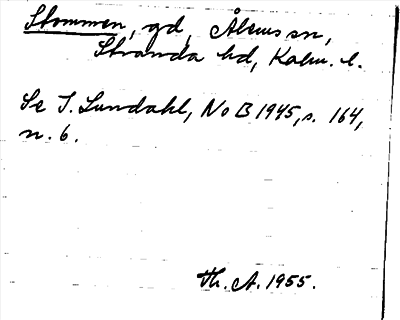 Stommen, gd, Ålems sn,
Stranda hd, Kalm. l.
Se I. Lundahl, NoB 1945, s. 164,
n. 6.
Th. A. 1955.